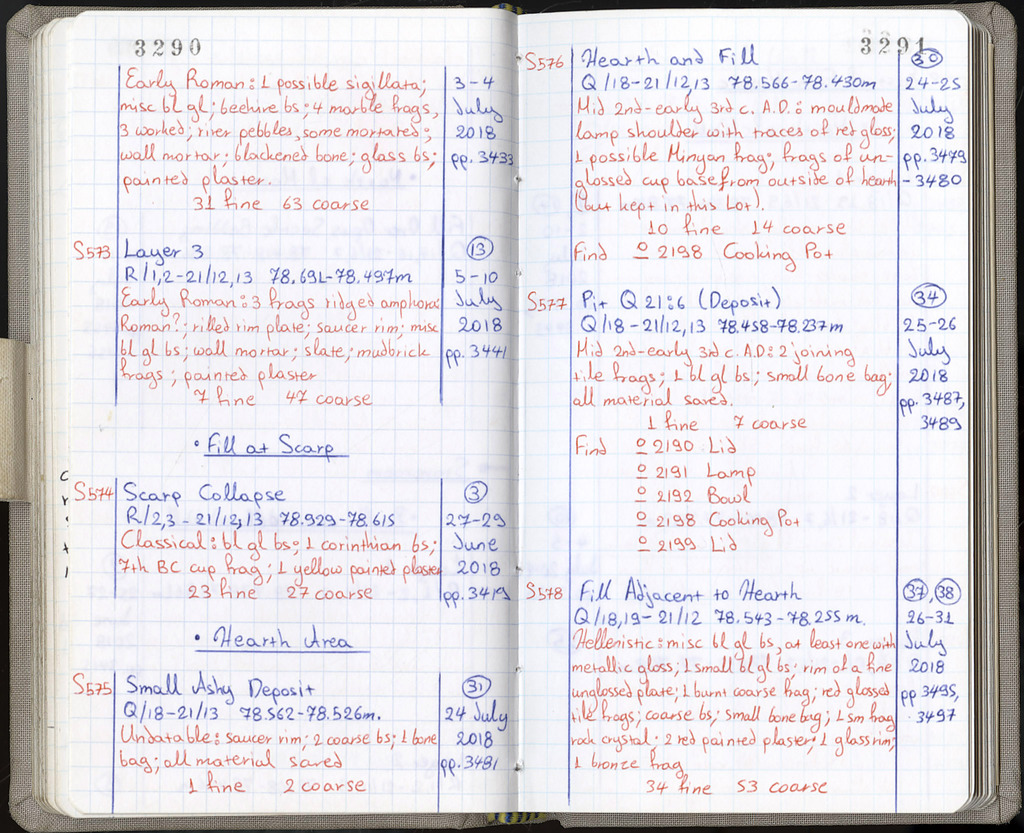 3290
Early Roman: 1 possible sigillata; 3-4
misc bl gl; beehive bs; 4 marble frags, July
3 worked; river pebbles, some mortated; 2018
wall mortar; blackened bone; glass bs; pp. 3433
painted plaster.
31 fine 63 coarse
S573 Layer 3 13
R/1,2-21/12,13 78.691-78.497m 5-10
Early Roman: 3 frags ridged amphora July
Roman?; rilled rim plate; saucer rim; misc 2018
bl gl bs; wall mortar; slate; mudbrick pp. 3441
frags; painted plaster
7 fine 47 coarse
• Fill at Scarp
S574 Scarp Collapse 3
R/2,3-21/12,13 78.929-78.615 27-29
Classical: bl gl bs; 1 corinthian bs; June
7th BC cup frag; 1 yellow painted plaster 2018
23 fine 27 coarse pp. 3419
• Hearth Area
S575 Small Ashy Deposit 31
Q/18-21/13 78.562-78.526m. 24 July
Undatable: saucer rim; 2 coarse bs; 1 bone 2018
bag; all material saved pp. 3481
1 fine 2 coarse
3291
S576 Hearth and Fill 30
Q/18-21/12,13 78.566-78.430m 24-25
Mid 2nd-early 3rd c. A.D.: mouldmade July
lamp shoulder with traces of red gloss; 2018
1 possible Minyan frag; frags of un- pp. 3479
glossed cup base from outside of hearth -3480
(but kept in this Lot).
10 fine 14 coarse
Find 2198 Cooking Pot
S577 Pit Q 21:6 (Deposit) 34
Q/18-21/12,13 78.458-78.237m 25-26
Mid 2nd-early 3rd c. A.D: 2 joining July
tile frags; 1 bl gl bs; small bone bag; 2018
all material saved. pp. 3487,
1 fine 7 coarse 3489
Find 2190 Lid
2191 Lamp
2192 Bowl
2198 Cooking Pot
2199 Lid
S578 Fill Adjacent to Hearth 37, 38
Q/18,19-21/12 78.543-78.255 m. 26-31
Hellenistic: misc bl gl bs, at least one with July
metallic gloss; 1 small bl gl bs; rim of a fine 2018
unglossed plate; 1 burnt coarse frag; red glossed pp 3495,
tile frags; coarse bs; small bone bag; 1 sm frag 3497
rock crystal; 2 red painted plaster; 1 glass rim;
1 bronze frag
34 fine 53 coarse